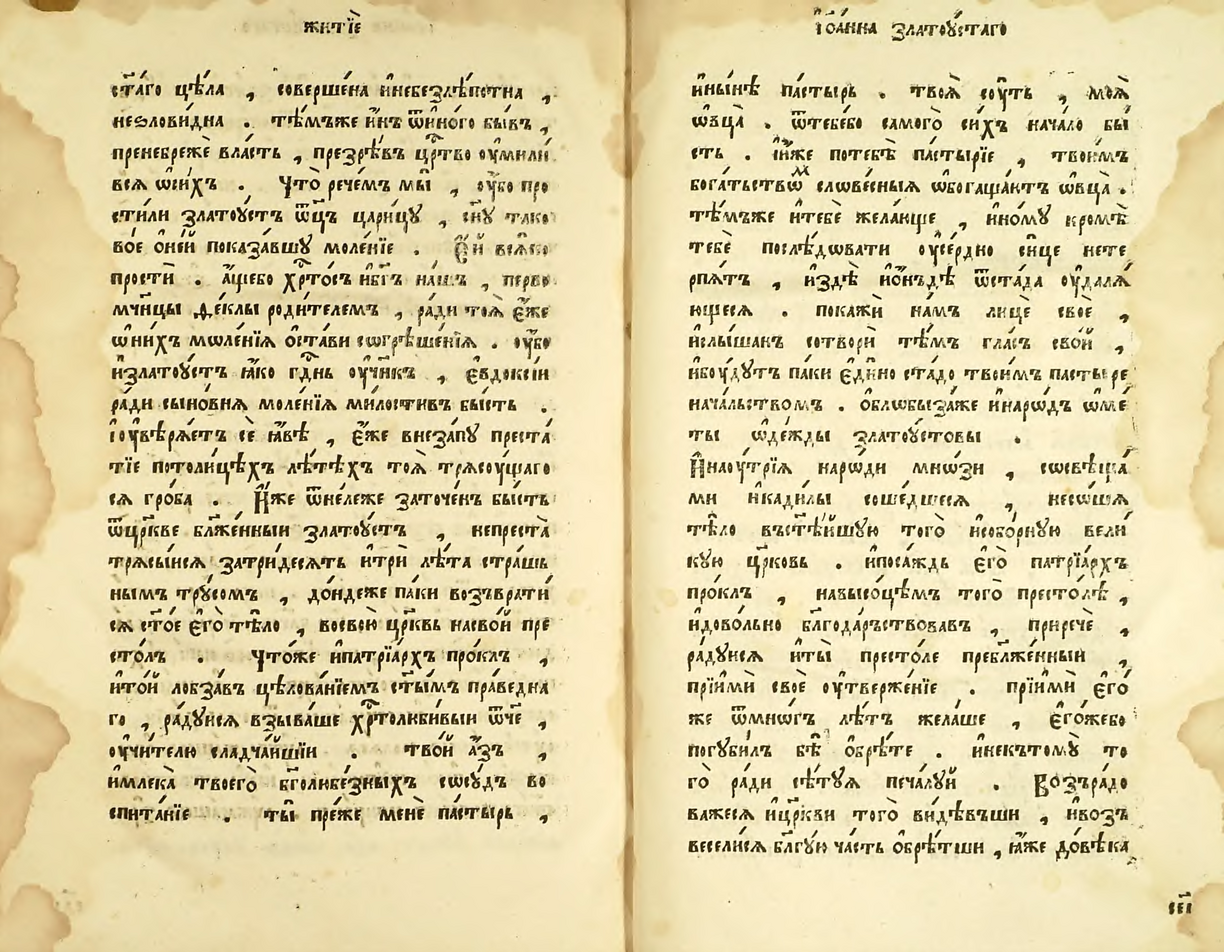 житїѐ
ст҃а́го цѣ́ла , соверше́на и҆небезлѣ́потна ,
неѕлови́дна . тѣ́мъже и҆́нъ ѿи҆но́го бы́въ ,
пренебрежѐ вла́сть , презрѣ́въ црⷭ҇тво оу҆мили
всѧ̀ ѡ҆си́хъ . Что̀ рече́мъ мы̀ , оу҆́бо про
сти́ли златоꙋ́стъ ѿц҃ъ цари́цꙋ , сн҃ꙋ тако
во́е ѡ҆не́й показа́вшꙋ моле́нїе . Е҆́й всѧ́ко
простѝ . а҆́щебо хрⷭ҇то́съ и҆бг҃ъ на́шъ , перво
мч҃ницы ѳе́клы роди́телемъ , ра́ди тоѧ̀ є҆́же
ѡ҆ни́хъ мѡле́нїѧ ѡ҆ста́ви сѡгрѣше́нїѧ . оу҆́бо
и҆златоꙋ́стъ ꙗ҆́кѡ гдⷭ҇нь оу҆чн҃къ , є҆ѵдоксі́и
ра́ди сыно́внѧ моле́нїѧ ми́лостивъ бы́сть .
і҆оу҆вѣрѧ́етъ сѐ ꙗ҆́вѣ , є҆́же внеза́пꙋ преста́
тїе потоли́цѣхъ лѣ́тѣхъ тоѧ̀ трѧсоу́щаго
сѧ гро́ба . И҆́же ѿне́леже заточе́нъ бы́сть
ѿцр҃кве бл҃же́нныи златоꙋ́стъ , непреста̀
трѧсы́исѧ затри́десѧть и҆трѝ лѣ́та стра́шь
нымъ трꙋ́сомъ , до́ндеже па́ки возъврати́
сѧ ст҃о́е є҆гѡ̀ тѣ́ло , восвою̀ цр҃квь насво́й пре
сто́лъ . Что́же и҆патрїа́рхъ про́клъ ,
и҆то́й лобза́въ цѣлова́нїемъ ст҃ы́мъ пра́ведна
го , ра́дꙋисѧ взыва́ше хрⷭ҇толюби́выи ѿч҃е ,
оу҆чи́телю сладча́йшїи . тво́й а҆́зъ ,
и҆млека̀ твоегѡ̀ бг҃олюбе́зныхъ сѡсꙋ́дъ во
спита́нїе . ты̀ пре́же менѐ па́стырь ,
і҆ѡа́нна златоꙋ́стаго
и҆ны́нѣ па́стырь . твоѧ̀ сꙋ́ть , моѧ̀
ѡ҆вца̀ . ѿтебе́бо самого̀ си́хъ нача́ло бы́
сть . и҆́же потебѣ̀ па́стырїе , твои́мъ
бога́тьствѡⷨ слѡве́сныѧ ѡ҆богаща́ютъ ѡ҆вца̀ .
тѣ́мъже и҆тебѐ жела́юще , и҆но́мꙋ кромѣ̀
тебѐ послѣ́дѡвати оу҆се́рдно си́це нете
рпѧ́тъ , и҆здѣ̀ и҆ѻ҆нъдѣ̀ ѿста́да оу҆далѧ́
ющесѧ . покажѝ на́мъ лицѐ своѐ ,
и҆слы́шанъ сотворѝ тѣ́мъ гла́съ сво́й ,
и҆боу́дꙋтъ па́ки є҆ди́но ста́до твои́мъ па́стыре
нача́льствомъ . ѻ҆блѡбыза́же и҆наро́дъ ѡ҆ме́
ты ѡ҆де́жды златоꙋ́стовы .
И҆наоу́трїѧ наро́ди мно́зи , сѡсвѣща́
ми и҆кади́лы соше́дшесѧ , несо́шѧ
тѣ́ло въст҃ѣ́йшꙋю того̀ и҆собо́рнꙋю вели́
кꙋю цр҃ковь . и҆поса́ждь є҆го̀ патрїа́рхъ
про́клъ , навысо́цѣмъ того̀ престо́лѣ ,
и҆дово́льно бл҃года́рьствовавъ , приречѐ ,
ра́дꙋисѧ и҆ты̀ престо́ле пребл҃же́нный ,
прїимѝ своѐ оу҆твержде́нїе . прїимѝ є҆го́
же ѿмно́гъ лѣ́тъ жела́ше , є҆го́жебо
погуби́лъ бѣ̀ ѡ҆брѣ́те . и҆некътомꙋ̀ то
го̀ ра́ди сѣ́тꙋѧ печа́лꙋй . Возъра́до
важесѧ и҆цр҃кви того̀ ви́дѣвъши , и҆воз
весели́сѧ бл҃гꙋ́ю ча́сть ѡ҆брѣ́тши , ꙗ҆́же до́вѣка